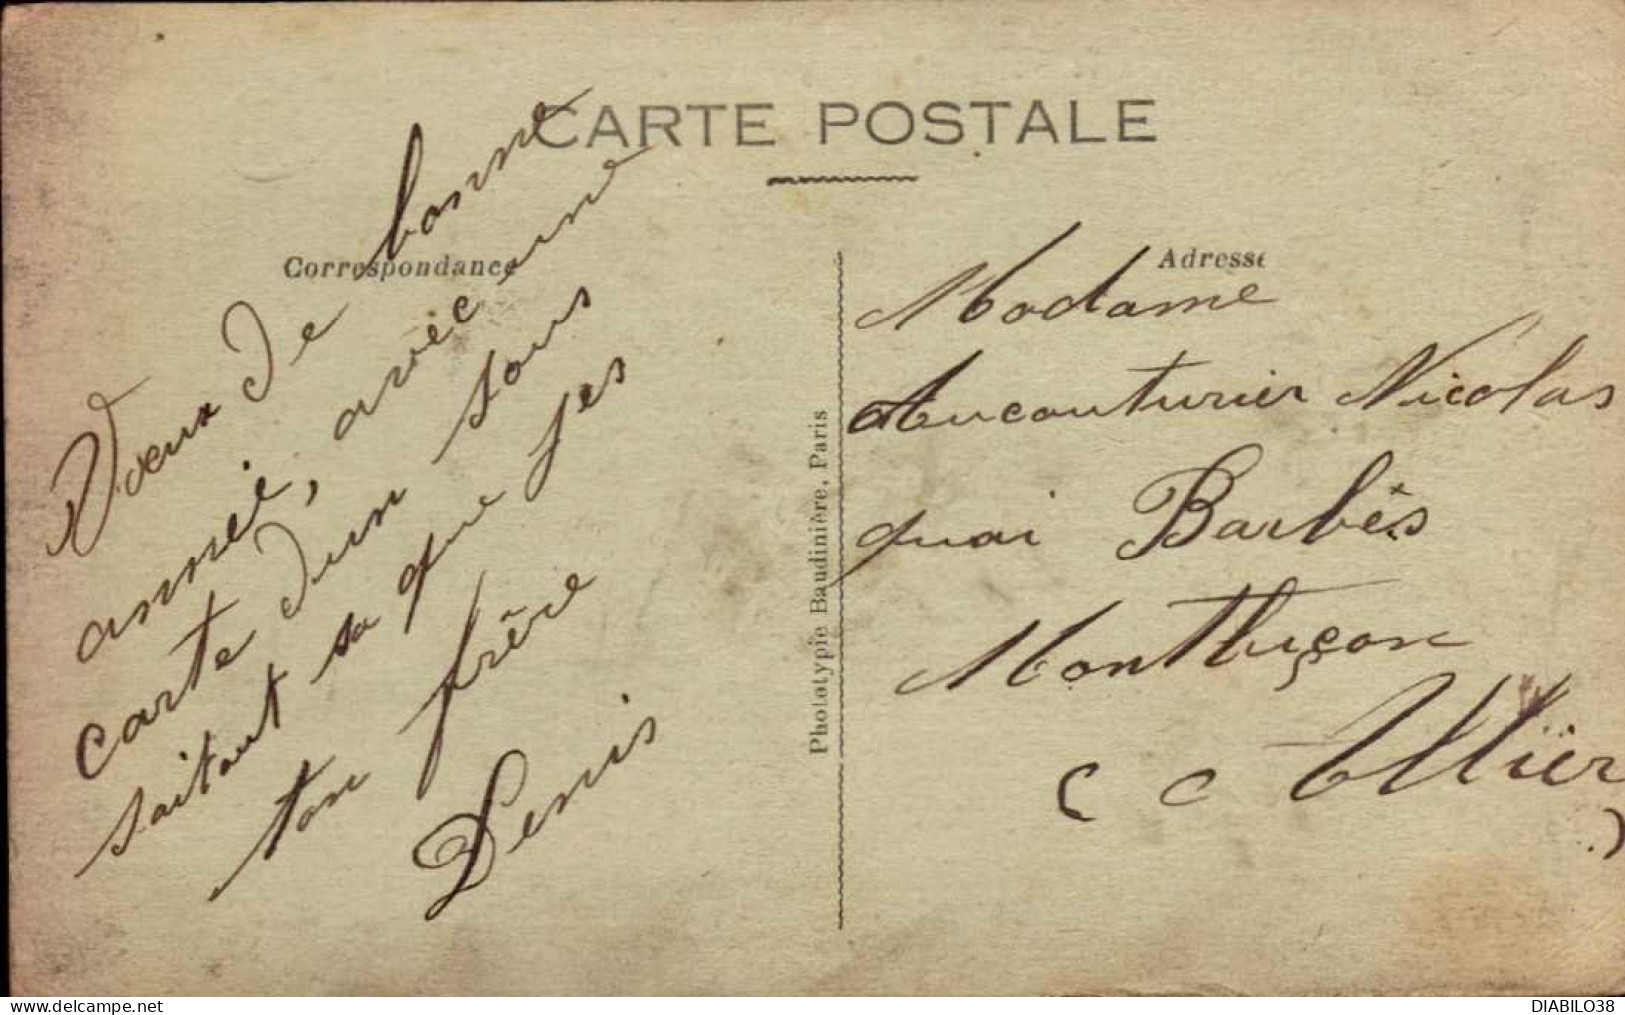 CARTE POSTALE
Correspondance
Voeux de bonne
année, avec une
carte d'un sous
saitout sa que jes
ton frère
Denis
Photolypie Baudinière, Paris
Adresse
Madame
Aucouturier Nicolas
quai Barbès
Montluçon
( Allier
)
DIABILO38